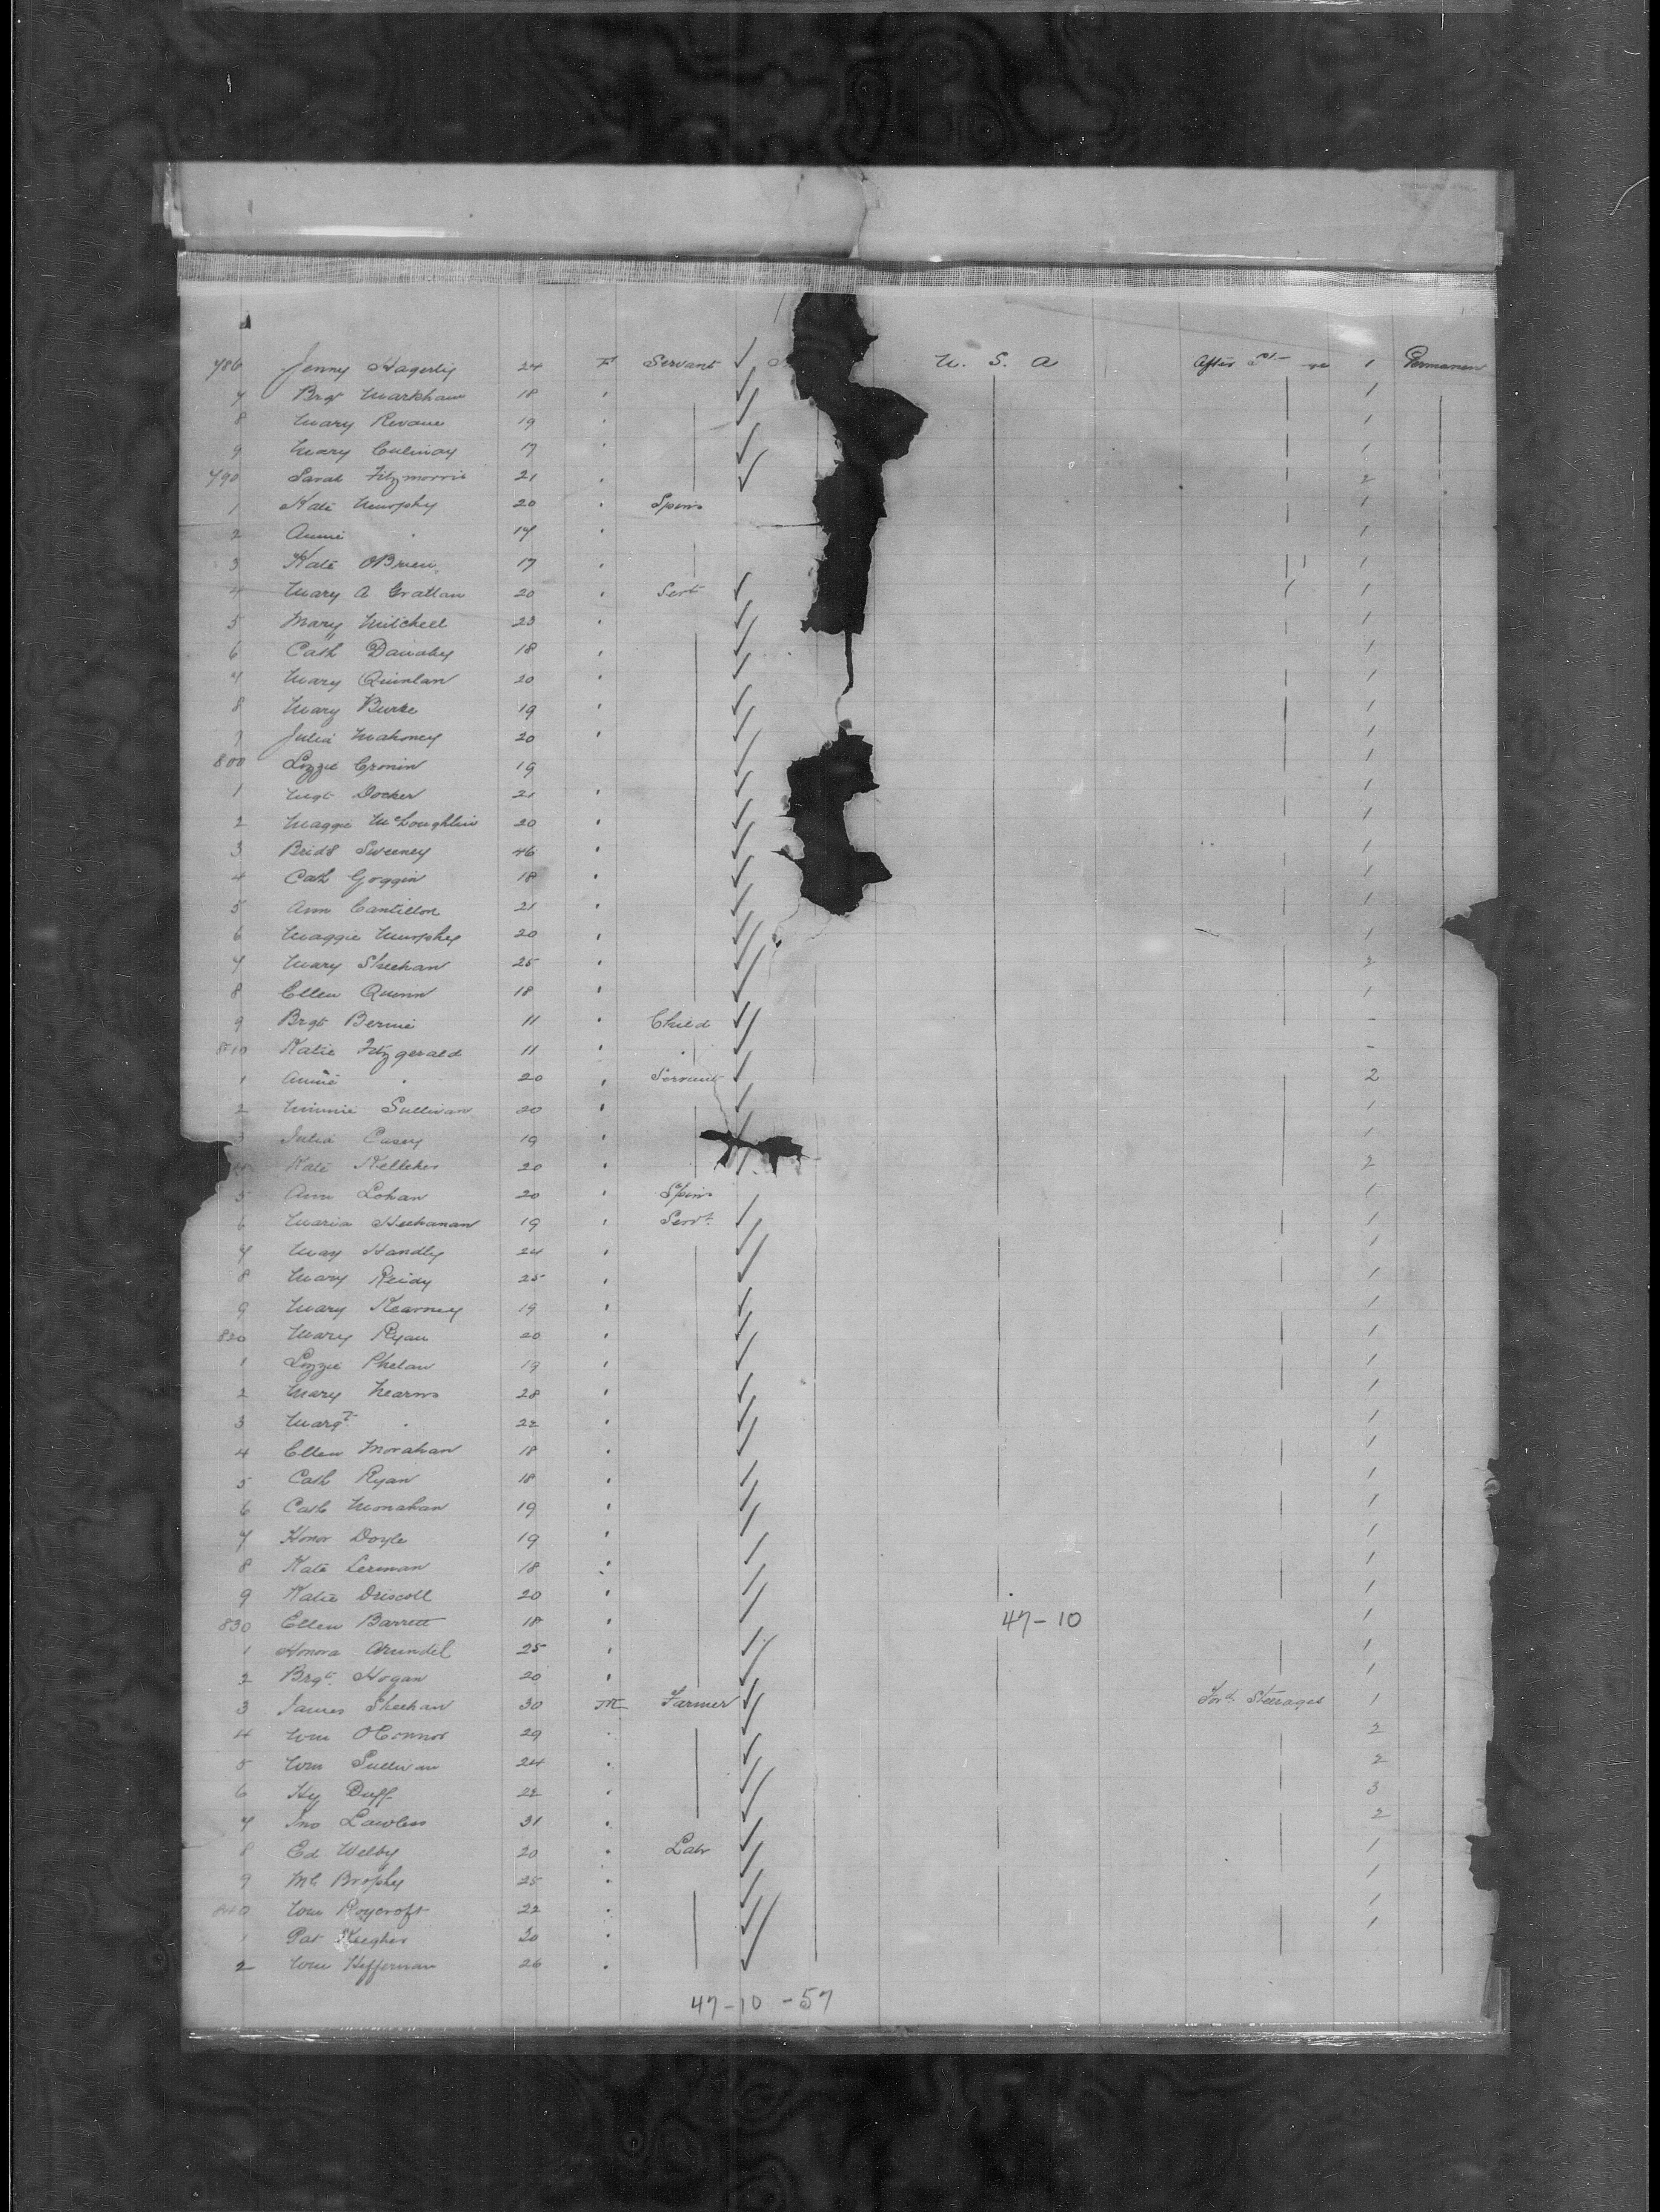 786 Jenny Hagerty 24 F Servant ✓ U. S. A After 1 Permanen
7 Brgt Markham 18 " ✓ 1
8 Mary 19 " ✓ 1
9 Mary 17 " ✓ 1
790 Sarah Fitzmorris 21 " ✓ 2
1 Kate Murphy 20 " Spins 1
2 Annie " 17 " 1
3 Kate OBrien 17 " 1
4 Mary A Grattan 20 " Servt ✓ 1
5 Mary Mitchell 23 " ✓ 1
6 Cath 18 " ✓ 1
7 Mary Quinlan 20 " ✓ 1
8 Mary Burke 19 " ✓ 1
9 Julia Mahoney 20 " ✓ 1
800 Lizzie Cronin 19 ✓ 1
1 Mgt Docker 21 " ✓ 1
2 Maggie McLoughlin 20 " ✓ 1
3 Bridt Sweeney 46 " ✓ 1
4 Cath Goggin 18 " ✓ 1
5 Ann Cantillon 21 " ✓ 1
6 Maggie Murphy 20 " ✓ 1
7 Mary Sheehan 25 " ✓ 2
8 Ellen Quinn 18 " ✓ 1
9 Brgt 11 " Child ✓ -
810 Katie Fitzgerald 11 " " ✓ -
1 Annie " 20 " Servant ✓ 2
2 Minnie Sullivan 20 " ✓ 1
3 Julia Casey 19 " 1
4 Kate Kelleher 20 " 2
5 Ann Lohan 20 " Spins 1
6 Maria 19 " Servt ✓ 1
7 May Handly 24 " ✓ 1
8 Mary Reidy 25 " ✓ 1
9 Mary Kearney 19 " ✓ 1
820 Mary Ryan 20 " ✓ 1
1 Lizzie Phelan 19 " ✓ 1
2 Mary 28 " ✓ 1
3 Margt " 22 " ✓ 1
4 Ellen 18 " ✓ 1
5 Cath Ryan 18 " ✓ 1
6 Cath Monahan 19 " ✓ 1
7 Honor Doyle 19 " ✓ 1
8 Kate 18 " ✓ 1
9 Katie Driscoll 20 " ✓ 1
830 Ellen Barrett 18 " ✓ 47-10 1
1 Honora Arundel 25 " ✓ 1
2 Brgt Hogan 20 " ✓ 1
3 James Sheehan 30 M Farmer ✓ Ford Steerages 1
4 Wm OConnor 29 " ✓ 2
5 Wm Sullivan 24 " ✓ 2
6 Hy Duff 22 " ✓ 3
7 Jno Lawless 31 " ✓ 2
8 Ed Welby 20 " Labr ✓ 1
9 Ml Brophy 25 " ✓ 1
840 Wm Roycroft 22 " ✓ 1
1 Pat Hughes 30 " ✓ 1
2 Wm Heffernan 26 " ✓
47-10 -57